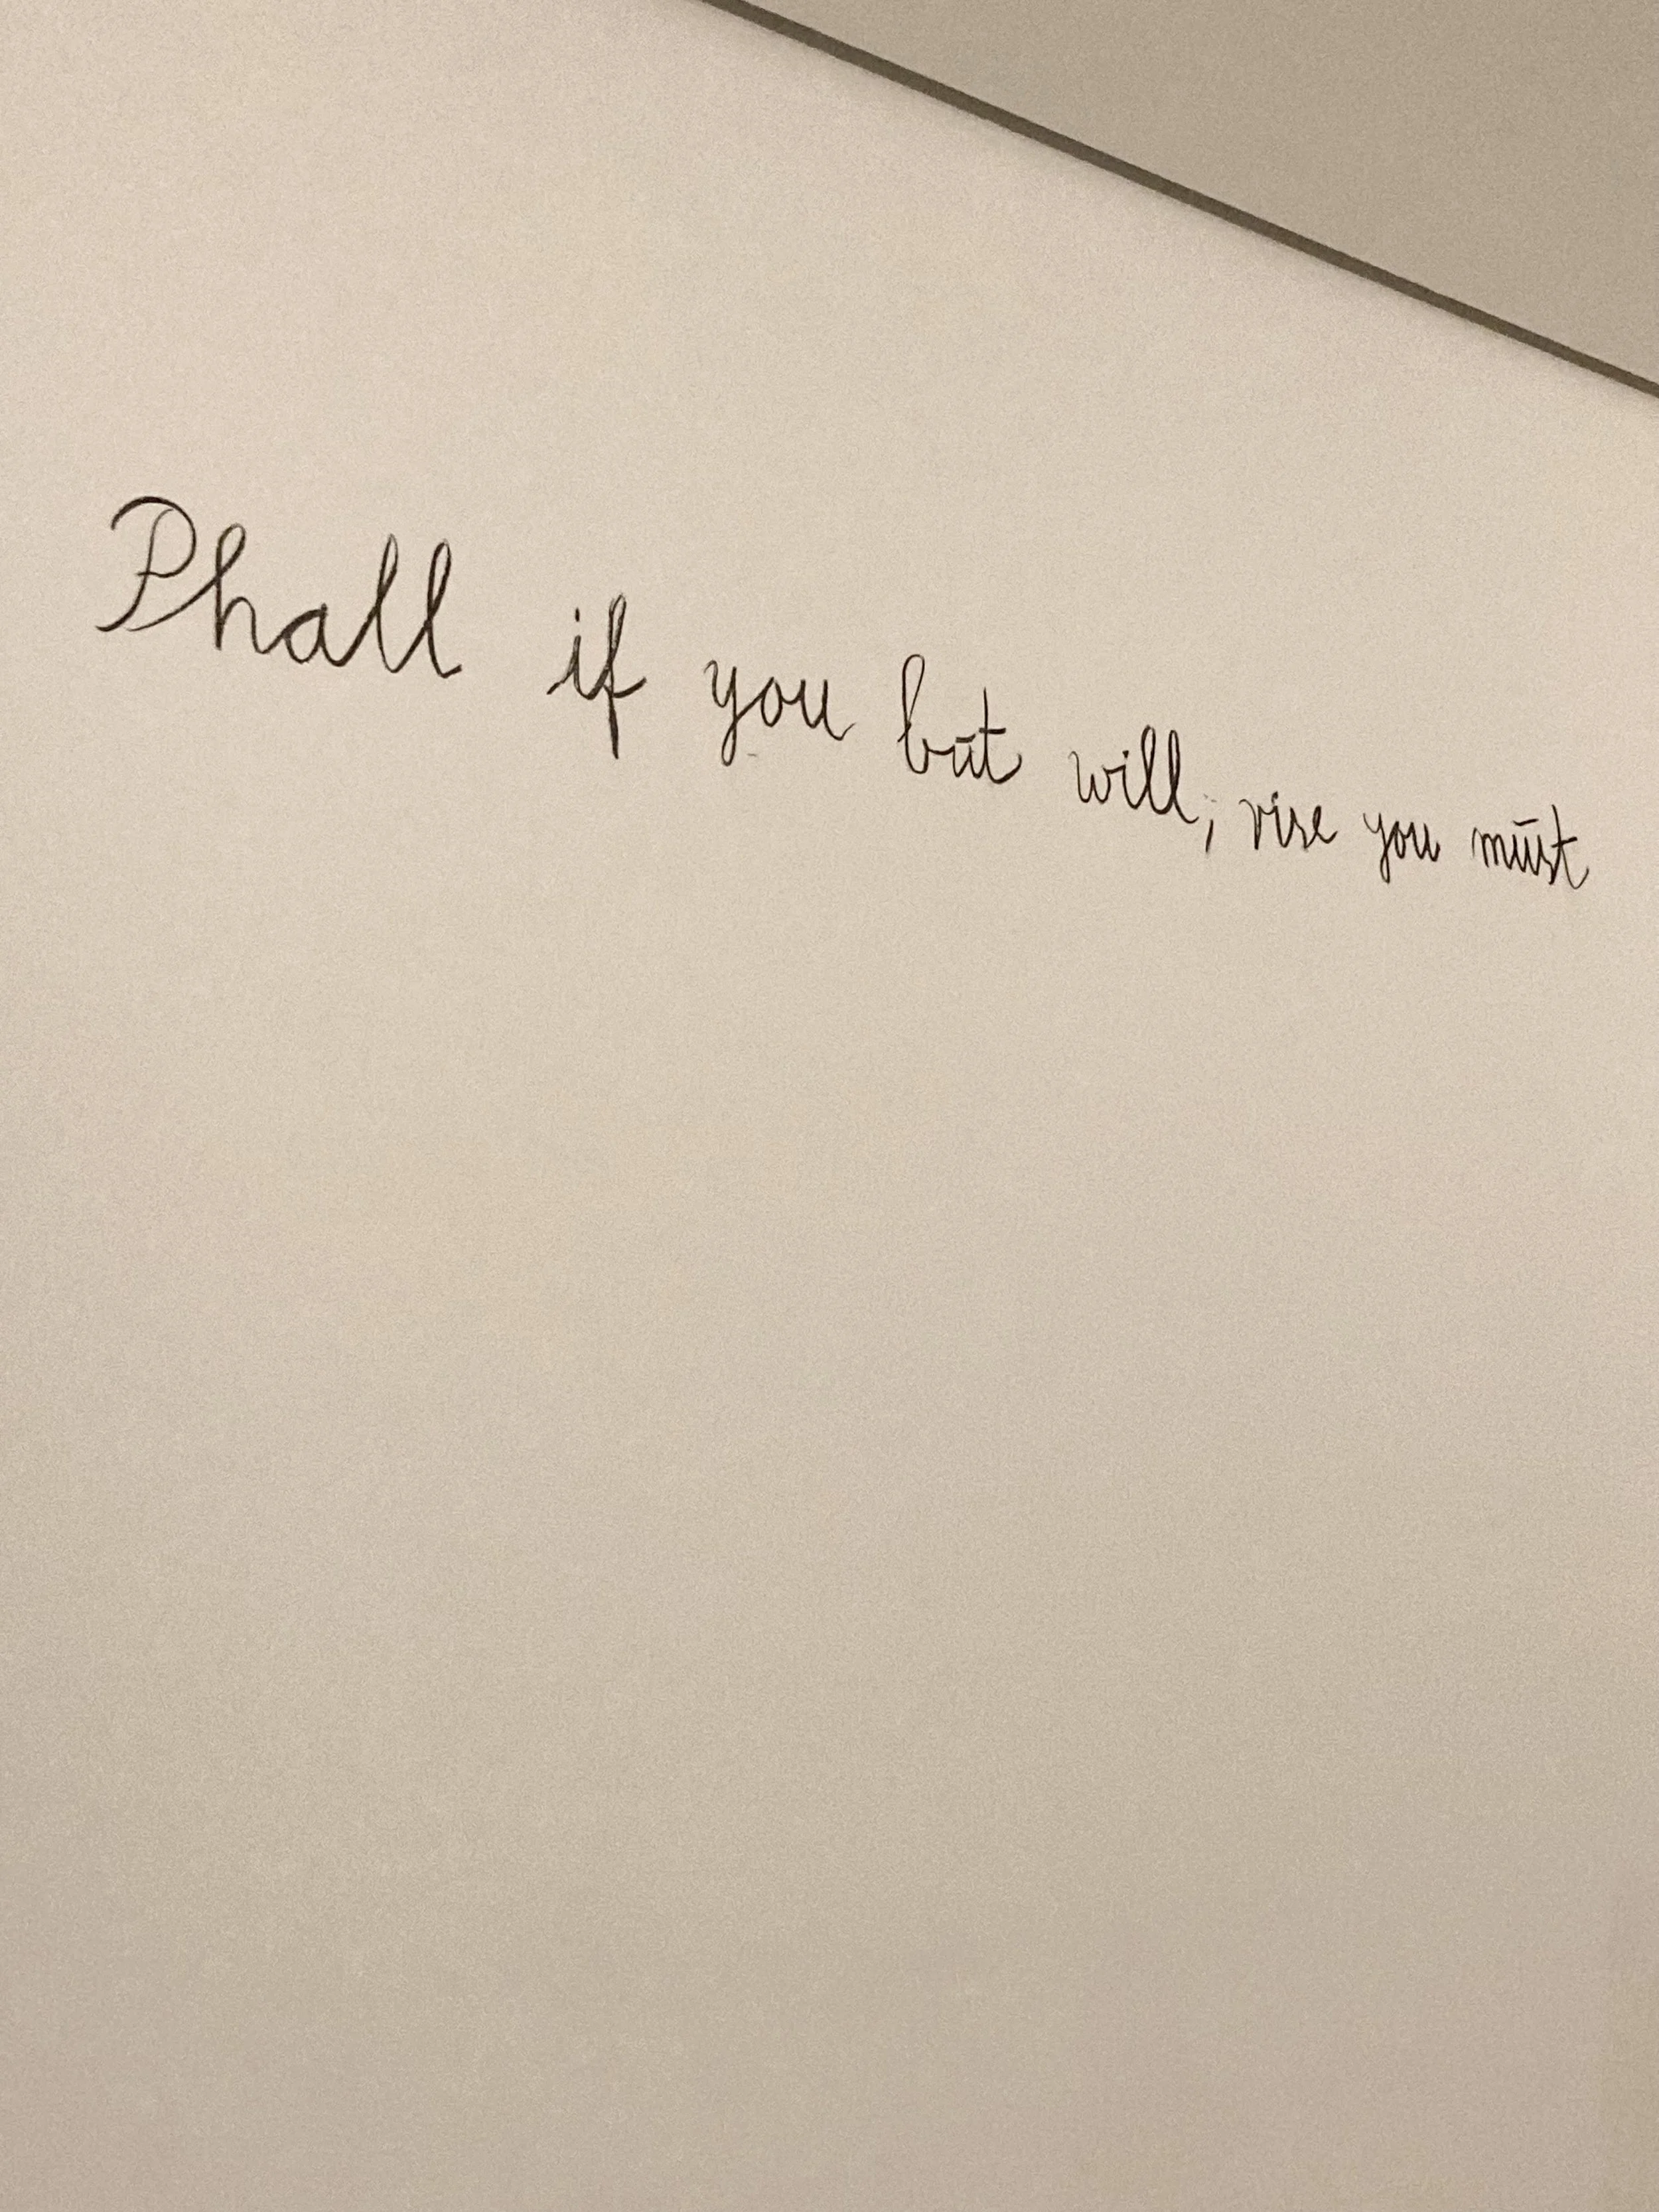 Phall if you but will, rise you must